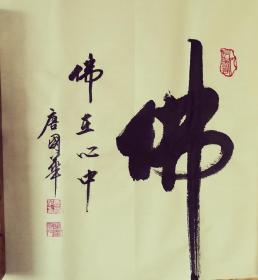 佛
佛在心中
唐国华